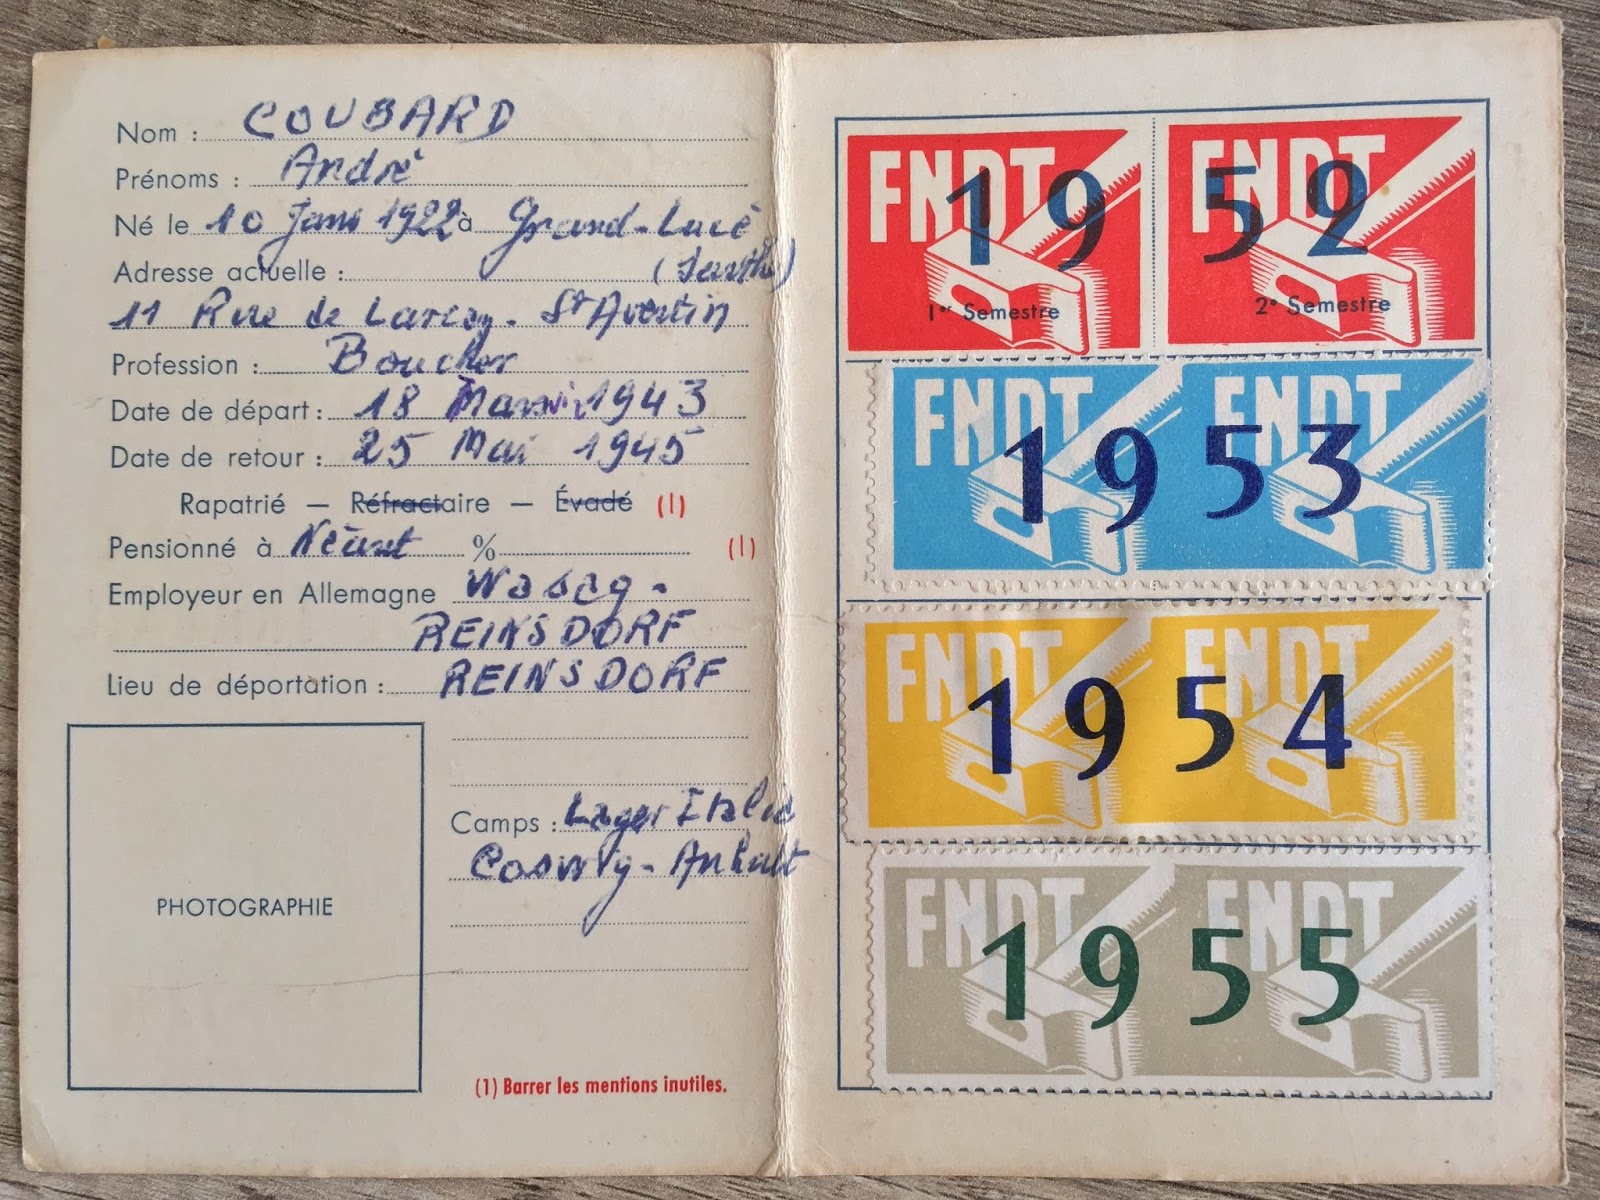 Nom : COUBARD
Prénoms : André
Né le 10 Janv 1922 à Grand-Lucé
Adresse actuelle : (Sarthe)
11 Rue de Larçay - St Avertin
Profession : Boucher
Date de départ : 18 1943
Date de retour : 25 Mai 1945
Rapatrié — Réfractaire — Évadé (1)
Pensionné à Néant % (1)
Employeur en Allemagne Wasag -
REINSDORF
Lieu de déportation : REINSDORF
Camps : Lager Italia
Coswig - Anhalt
PHOTOGRAPHIE
(1) Barrer les mentions inutiles.
FNDT FNDT
19 52
1er Semestre 2e Semestre
FNDT FNDT
1953
FNDT FNDT
1954
FNDT FNDT
1955